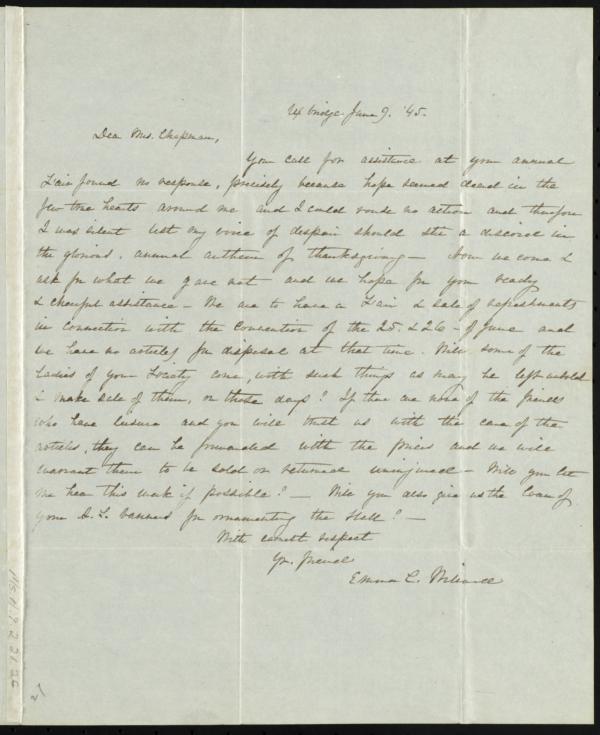 Uxbridge June 9. '45.
Dear Mrs. Chapman,
Your call for assistance at your annual
Fair found no response, precisely because hope seemed dead in the
few true hearts around me and I could rouse no action and therefore
I was silent lest my voice of despair should stir a discord in
the glorious, annual anthem of thanksgiving — Now we come &
ask for what we gave not and we hope for your ready
& cheerful assistance — We are to have a Fair & sale of refreshments
in connection with the Convention of the 25. & 26 - of June and
we have no articles for disposal at that time. Will some of the
Ladies of your Society come, with such things as may be left unsold
& make sale of them, on those days? If there are none of the friends
who have leisure and you will trust us with the care of the
articles, they can be forwarded with the prices and we will
warrant them to be sold or returned uninjured — Will you let
me hear this week if possible? — Will you also give us the loan of
your A. S. banners for ornamenting the Hall? —
With earnest respect
Yr. friend
Emma C.
Ms. A. 9. 2 21. 20